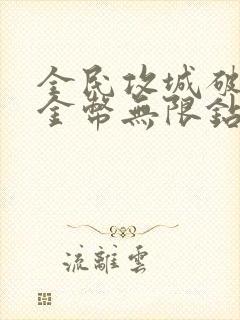 全民攻城破
金幣無限鉆
流離雲